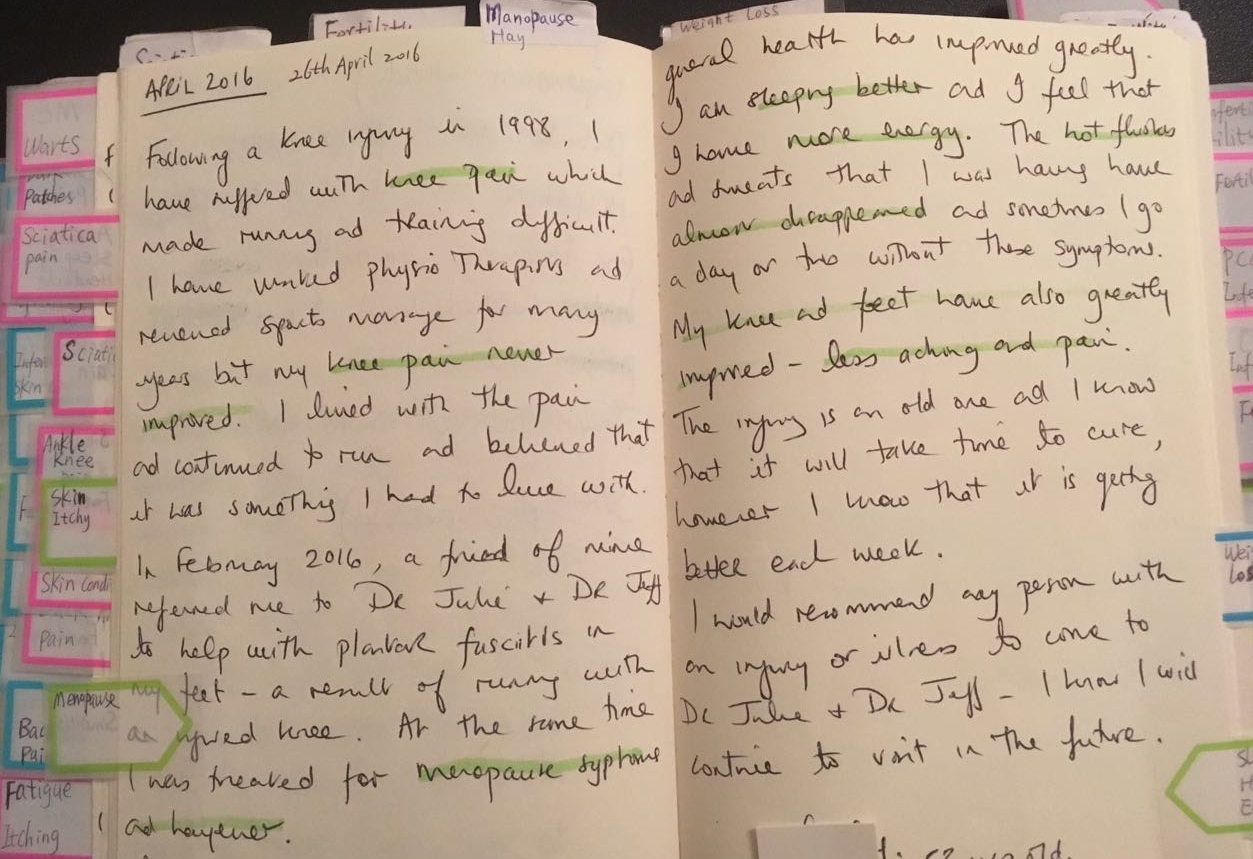 Fertility
Manopause
Hay
Weight Loss
Warts
Patches
Sciatica
pain
Sciati
Ankle
Knee
Skin
Itchy
Skin Condi
Pain
Menopause
Bac
Pai
Fatigue
Itching
APRIL 2016 26th April 2016
Following a knee injury in 1998, I
have suffered with knee pain which
made running ad training difficult.
I have visited physio Therapists ad
received sports massage for many
years but my knee pain never
improved. I lived with the pain
ad continued to run ad believed that
it was something I had to live with.
In February 2016, a friend of mine
referred me to DR Julie + DR Jeff
to help with plantar fasciitis in
my feet - a result of running with
an injured knee. At the same time
I was treated for menopause syptoms
ad hayfever.
general health has improved greatly.
I am sleeping better ad I feel that
I have more energy. The hot flushes
ad sweats that I was having have
almost disappeared ad sometimes I go
a day or two without these symptoms.
My knee ad feet have also greatly
improved - less aching and pain.
The injury is an old one ad I know
that it will take time to cure,
however I know that it is getting
better each week.
I would recommend any person with
an injury or illness to come to
DR Julie + DR Jeff - I know I will
continue to visit in the future.
Fertil
Wei
Los